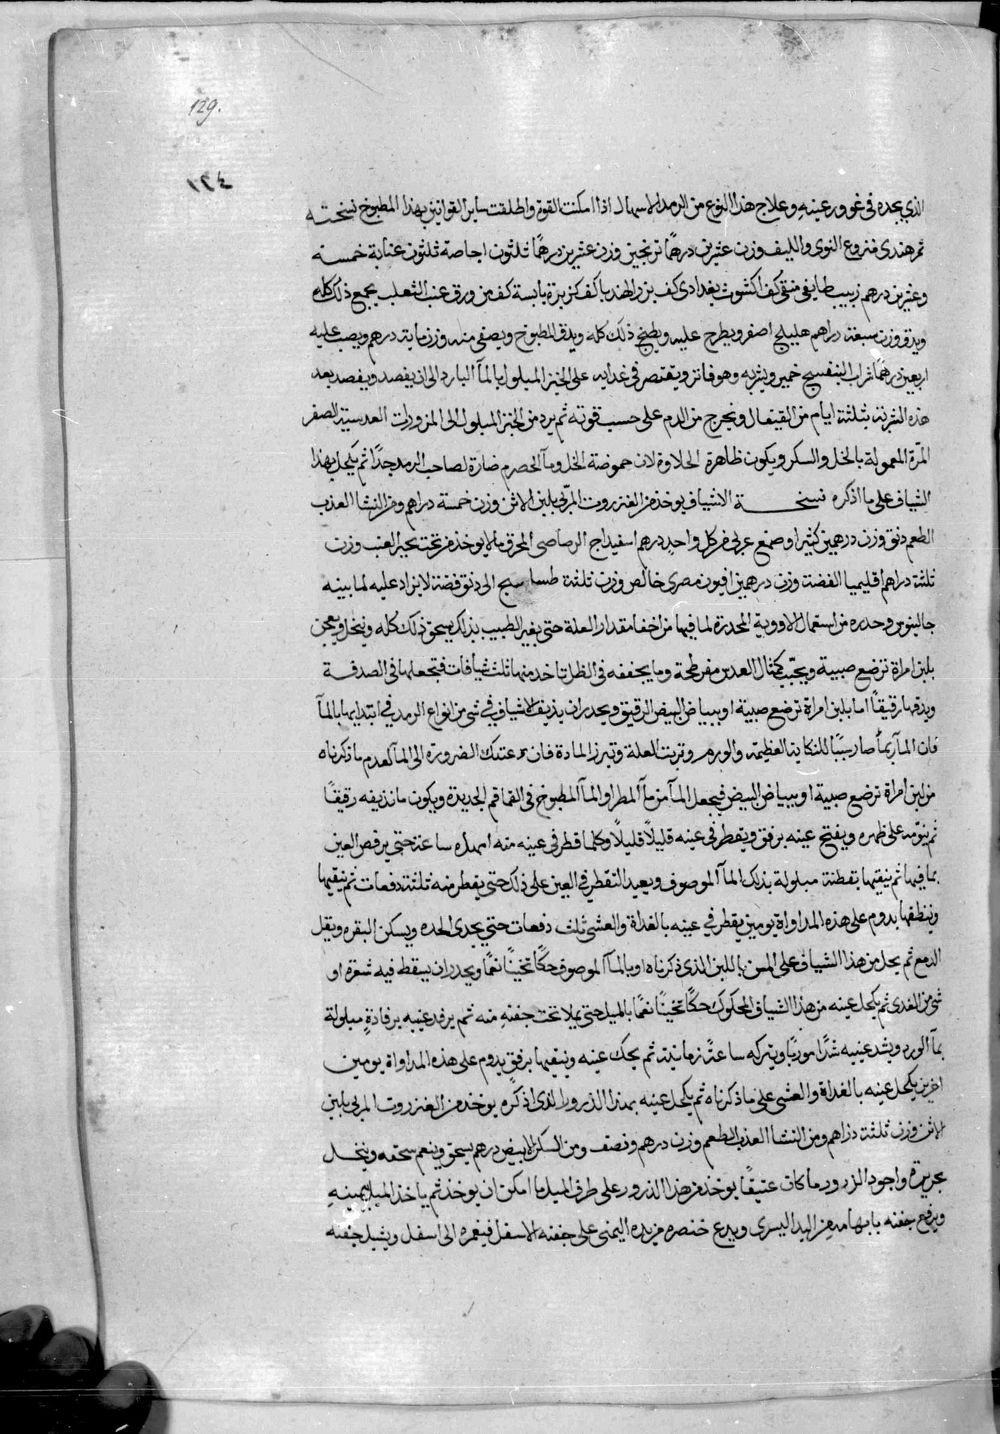 129.
١٢٤
الذي يجده في غور عينيه وعلاج هذا النوع من الرمد الاسهال اذا امكنت القوة واطلقت ساير القوانين بهذا المطبوخ نسخته
تمر هندي منزوع النوى والليف وزن عشرين درهما ترنجبين وزن عشرين درهمًا ثلثون اجاصة ثلثون عنابة خمسة
وعشرين درهم زبيب طايفي منقى كف اكشوث بغدادي كف بزر الهندبا كف كزبرة يابسة كف من ورق عنب الثعلب يجمع ذلك كله
ويدق وزن سبعة دراهم هليلج اصفر ويطرح عليه ويطبخ ذلك كله ويدق المطبوخ ويصفى منه وزن ماية درهم ويصب عليه
اربعين درهمًا شراب البنفسج خمير ويشربه وهو فاتر ويقتصر في غدايه على الخبز المبلول بالمآ البارد الى ان يفصد ويفصد بعد
هذه الشربة بثلثة ايام من القيفال ويخرج من الدم على حسب قوته ثم يرد من الخبز المبلول الى المزورات العدسية الصفر
المرّة المعمولة بالخل والسكر ويكون ظاهرة الحلاوة لان حموضة الخل ومآ الحصرم ضارة لصاحب الرمد جدًا ثم يكحل بهذا
الشياف على ما اذكره نسخة الاشياف يوخذ من العنزروت المربّى بلبن الاتن وزن خمسة دراهم ومن النشا العذب
الطعم دنق وزن درهمين كثيرا وصمغ عربي من كل واحد درهم اسفيداج الرصاصي المحرق مالا يوخذ من تحت نجير العنب وزن
ثلثة دراهم اقليميا الفضة وزن درهمين افيون مصري خالص وزن ثلثة طسا سيج الى دنق فضة لا يزاد عليه لما بينه
جالينوس وحدره من استعمال الادوية المخدرة لما فيها من اخفا مقدار العلة حتى يغير الطبيب بذلك يسحق ذلك كله وينخل ويعجن
بلبن امراة ترضع صبية ويحبّب كمثال العدس مفرطحة وما يجففه في الظل تاخد منها ثلث شيافات فتجعلها في الصدفة
ويدقها رقيقًا اما بلبن امراة ترضع صبية او ببياض البيض الرقيق ويحدر ان يذيف الاشياف في شي من انواع الرمد في ابتدايها بالمآ
فان المآ ربما صار سببًا للنكاية العظيمة والورم وتربت للعلة وتبرز المادة فان دعتك الضرورة الى المآ لعدم ما ذكرناه
من لبن امراة ترضع صبية او ببياض البيض فيجعل المآ من مآ المطر او المآ المطبوخ في القماقم الجديدة ويكون ما تذيفه رقيقًا
ثم ينوّمه على ظهره ويفتح عينه برفق ويقطر في عينه قليلًا قليلًا وكلما قطر في عينه منه امهله ساعة حتى يرفص العين
بما فيها ثم ينقيها بقطنة مبلولة بذلك المآ الموصوف ويعيد التقطير في العين على ذلك حتى يقطر منه ثلثة دفعات ثم ينقيها
وينظفها يدوم على هذه المداواة يومين يقطر في عينه بالغداة والعشي ثلث دفعات حتى يجدى الحده ويسكن البقره ويقل
الدمع ثم يحل من هذا الشياف على المسن باللبن الذي ذكرناه او بالمآ الموصوف حكًا ثخينًا نعمًا ويحدر ان يسقط فيه شعرة او
شي من القذى ثم يكحل عينه من هذا الشياف المحكوك حكًا ثخينًا نعمًا بالميل حتى يملا تحت جفنه منه ثم يرفد عينيه برفادةٍ مبلولة
بمآ الورد ويشد عينيه شدًا موربًا ويتركه ساعة زمانية ثم يحك عينه وينقيها برفق يدوم على هذه المداواة يومين
اخرين يكحل عينه بالغداة والعشي على ما ذكرناه ثم يكحل عينه بهذا الذرور الذي اذكره يوخذ من العنزروت المربى بلبن
الاتن وزن ثلثة دراهم ومن النشا العذب الطعم وزن درهم ونصف ومن السكر الابيض درهم يسحق وينعم سحقه وينخل
بحريرة واجود الزرور ما كان عتيقًا يوخذ من هذا الذرور على طرف الميل ما امكن ان يوخذ ثم ياخذ الميل بيمينه
ويرفع جفنه بابهامه من اليد اليسرى ويدع خنصره من يده اليمنى على جفنه الاسفل فيغمره الى اسفل ويشيل جفنه